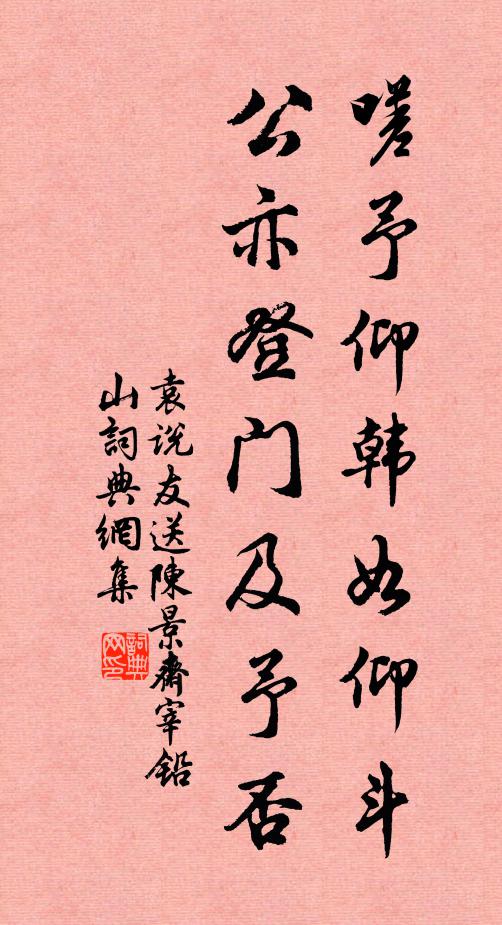 嗟予仰韩如仰斗
公亦登门及予否
袁说友送陳景齋宰鉛
山詞典網集
詞典网印